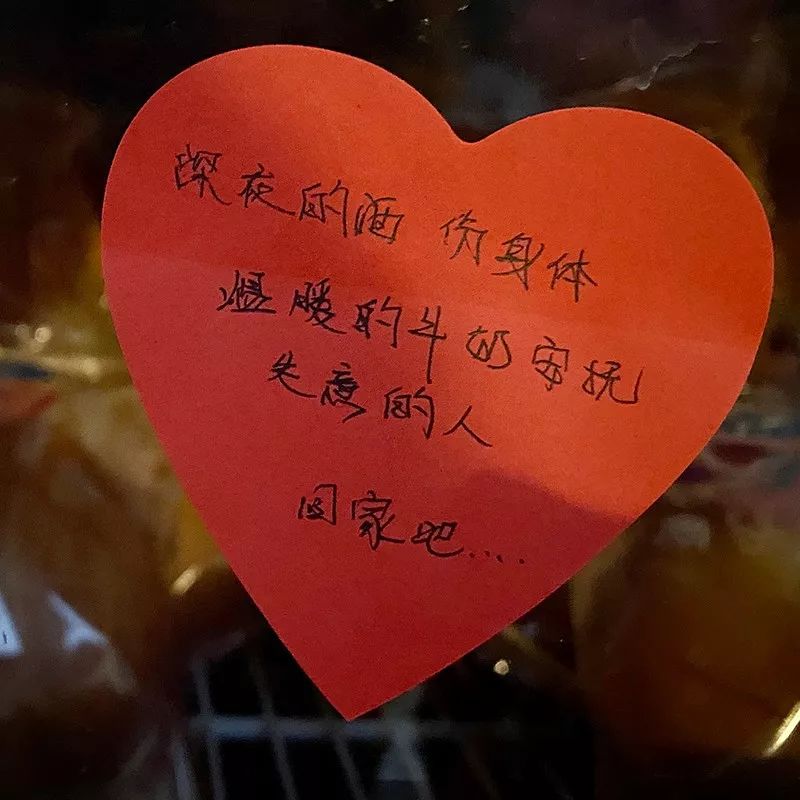 深夜的酒 伤身体
温暖的牛奶安抚
失意的人
回家吧....